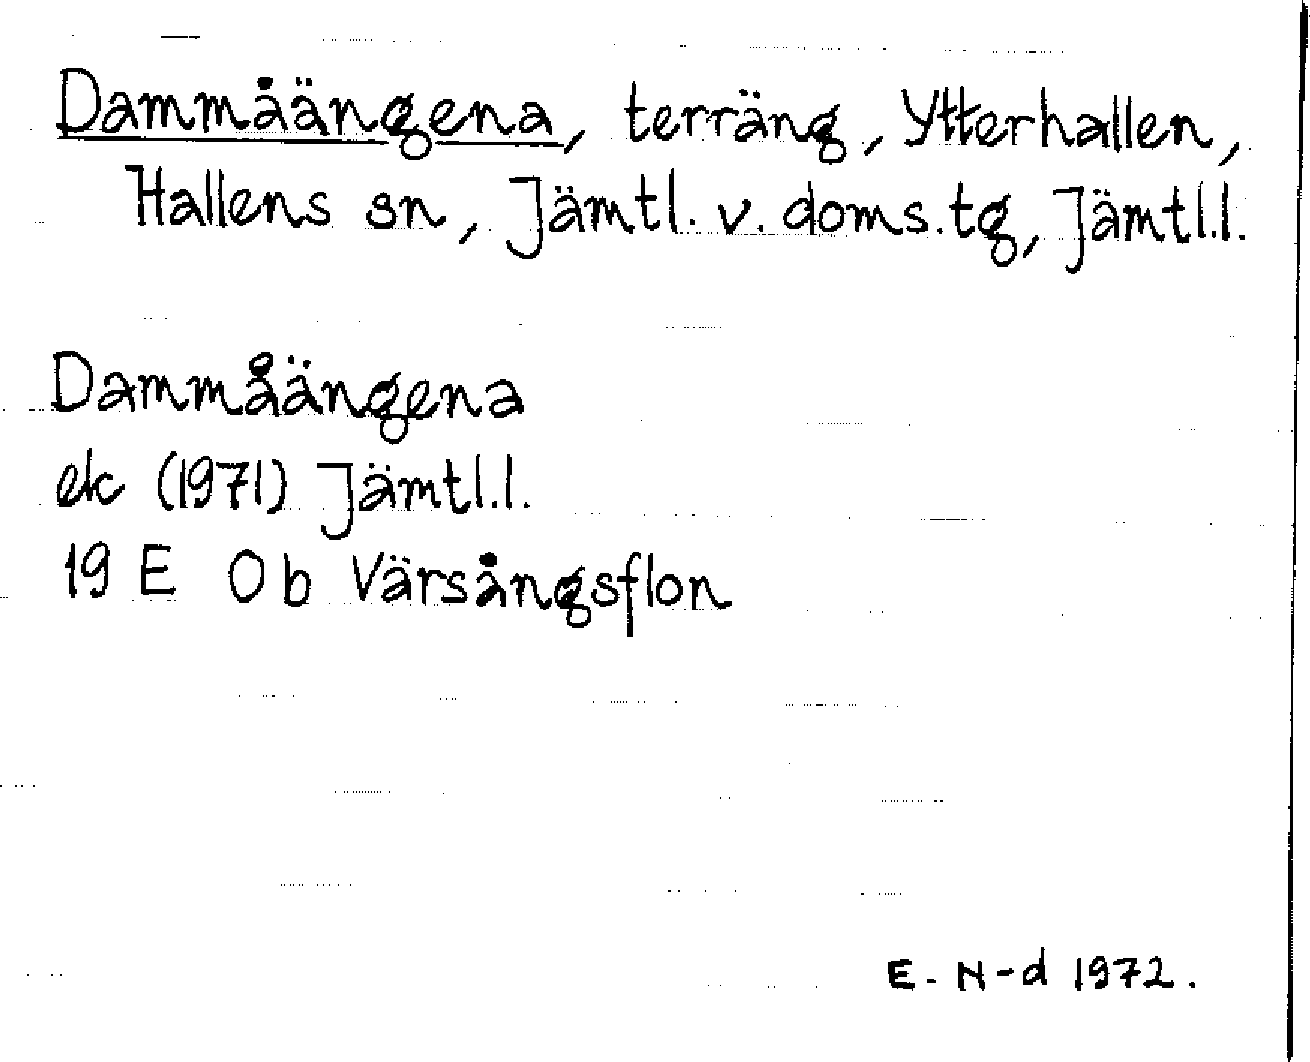 Dammåängena, terräng, Ytterhallen,
Hallens sn, Jämtl. v. doms.tg, Jämtl.l.
Dammåängena
ek (1971) Jämtl.l.
19 E 0b Värsångsflon
E. N-d 1972.